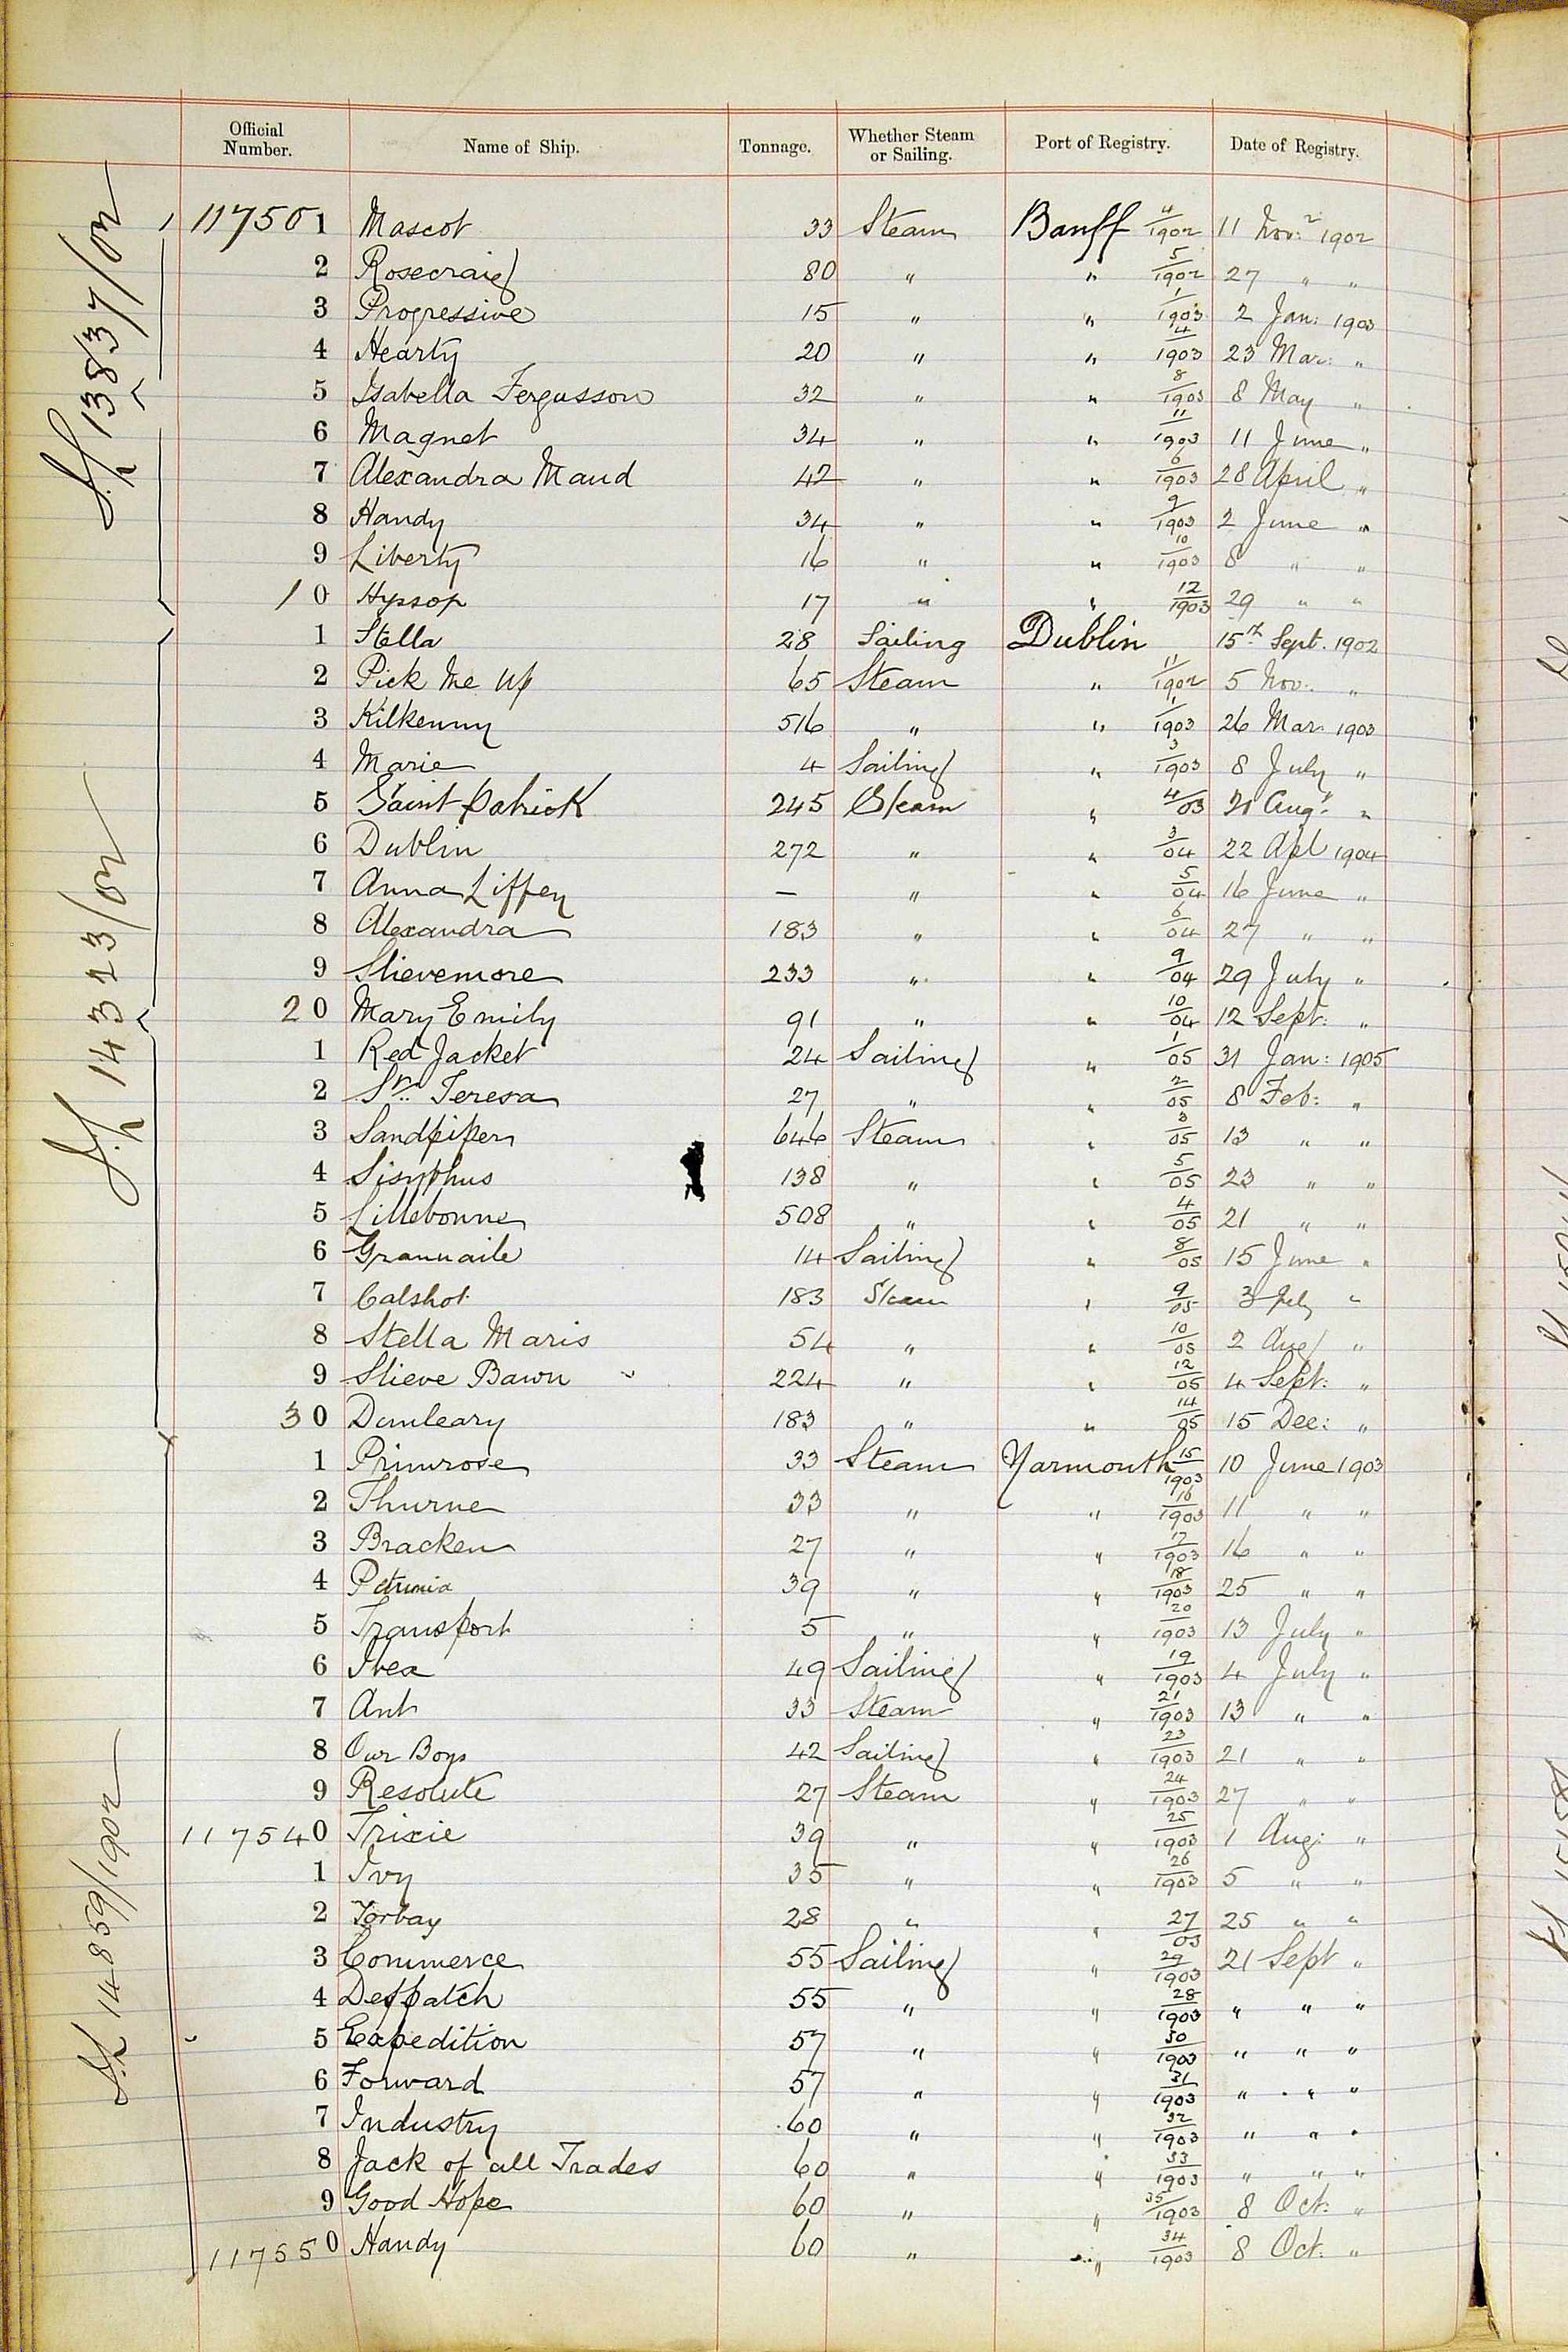 Official Number. Name of Ship. Tonnage. Whether Steam or Sailing. Port of Registry. Date of Registry.
117501 Mascot 33 Steam Banff 4/1902 11 Novr 1902
2 Rosecraig 80 " " 5/1902 27 " "
3 Progressive 15 " " 1/1903 2 Jan: 1903
4 Hearty 20 " " 4/1903 23 Mar: "
5 Isabella Fergusson 32 " " 8/1903 8 May "
6 Magnet 34 " " 11/1903 11 June "
7 Alexandra Maud 42 " " 6/1903 28 April "
8 Handy 34 " " 9/1903 2 June "
9 Liberty 16 " " 10/1903 8 " "
10 Hyssop 17 " " 12/1903 29 " "
1 Stella 28 Sailing Dublin 15th Sept. 1902
2 Pick Me Up 65 Steam " 11/1902 5 Nov: "
3 Kilkenny 516 " " 1/1903 26 Mar: 1903
4 Marie 4 Sailing " 3/1903 8 July "
5 Saint Patrick 245 Steam " 4/03 21 Augt "
6 Dublin 272 " " 3/04 22 Apl 1904
7 Anna Liffey — " " 5/04 16 June "
8 Alexandra 183 " " 6/04 27 " "
9 Slievemore 233 " " 9/04 29 July "
20 Mary Emily 91 " " 10/04 12 Sept: "
1 Red Jacket 24 Sailing " 1/05 31 Jan: 1905
2 St. Teresa 27 " " 2/05 8 Feb: "
3 Sandpiper 646 Steam " 3/05 13 " "
4 Sisyphus 138 " " 5/05 23 " "
5 Lillebonne 508 " " 4/05 21 " "
6 Granuaile 14 Sailing " 8/05 15 June "
7 Calshot 183 Steam " 9/05 3 July "
8 Stella Maris 54 " " 10/05 2 Aug "
9 Slieve Bawn 224 " " 12/05 4 Sept: "
30 Dunleary 183 " " 14/05 15 Dec: "
1 Primrose 33 Steam Yarmouth 15/1903 10 June 1903
2 Thurne 33 " " 16/1903 11 " "
3 Bracken 27 " " 17/1903 16 " "
4 Petunia 39 " " 18/1903 25 " "
5 Transport 5 " " 20/1903 13 July "
6 Ivea 49 Sailing " 19/1903 4 July "
7 Ant 33 Steam " 21/1903 13 " "
8 Our Boys 42 Sailing " 23/1903 21 " "
9 Resolute 27 Steam " 24/1903 27 " "
117540 Trixie 39 " " 25/1903 1 Aug: "
1 Ivy 35 " " 26/1903 5 " "
2 Torbay 28 " " 27/03 25 " "
3 Commerce 55 Sailing " 29/1903 21 Sept "
4 Despatch 55 " " 28/1903 " " "
5 Expedition 57 " " 30/1903 " " "
6 Forward 57 " " 31/1903 " " "
7 Industry 60 " " 32/1903 " " "
8 Jack of all Trades 60 " " 33/1903 " " "
9 Good Hope 60 " " 35/1903 8 Oct: "
117550 Handy 60 " " 34/1903 8 Oct: "
13837/02
14323/02
14859/1902